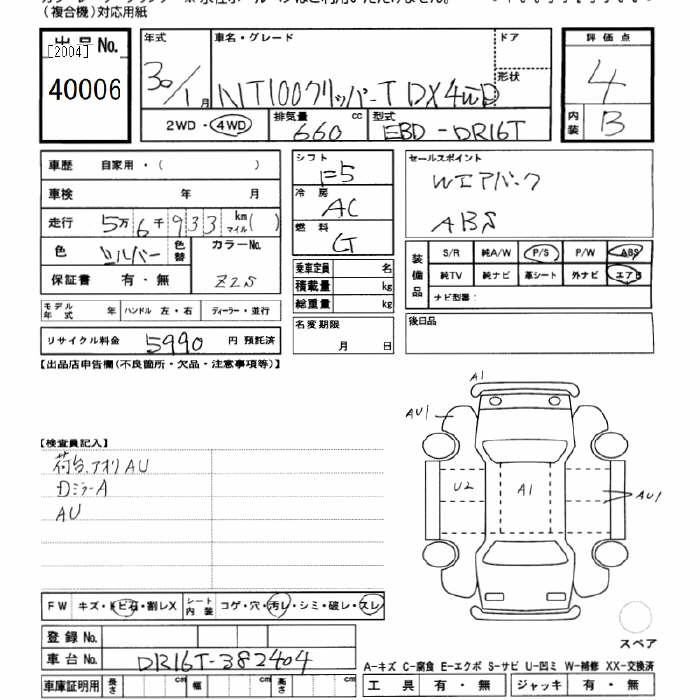 (複合機)対応用紙
出品No.
[2004]
40006
年式
30/1月
車名・グレード
NT100クリッパーT DX 4WD
ドア
形状
評価点
4
内装
B
2WD・4WD
排気量
660 cc
型式
EBD-DR16T
車歴 自家用・( )
車検 年 月
走行 5万6千933 km マイル( )
色 シルバー 色替
カラーNo.
Z2S
保証書 有・無
モデル年式 年 ハンドル 左・右 ディーラー・並行
リサイクル料金 5990 円 預託済
シフト
F5
冷房
AC
燃料
G
乗車定員 名
積載量 kg
総重量 kg
名変期限
月 日
セールスポイント
Wエアバック
ABS
装備品
S/R 純A/W P/S P/W ABS
純TV 純ナビ 革シート 外ナビ エアB
ナビ型番:
後日品
【出品店申告欄(不良箇所・欠品・注意事項等)】
【検査員記入】
荷台、アオリAU
DミラーA
AU
A1
AU1
U2
A1
AU1
FW キズ・トビ石・割レX
シート内装 コゲ・穴・汚レ・シミ・破レ・スレ
登録No.
車台No. DR16T-382404
車庫証明用 長さ cm 幅 cm 高さ cm
スペア
A-キズ C-腐食 E-エクボ S-サビ U-凹ミ W-補修 XX-交換済
工具 有・無 ジャッキ 有・無